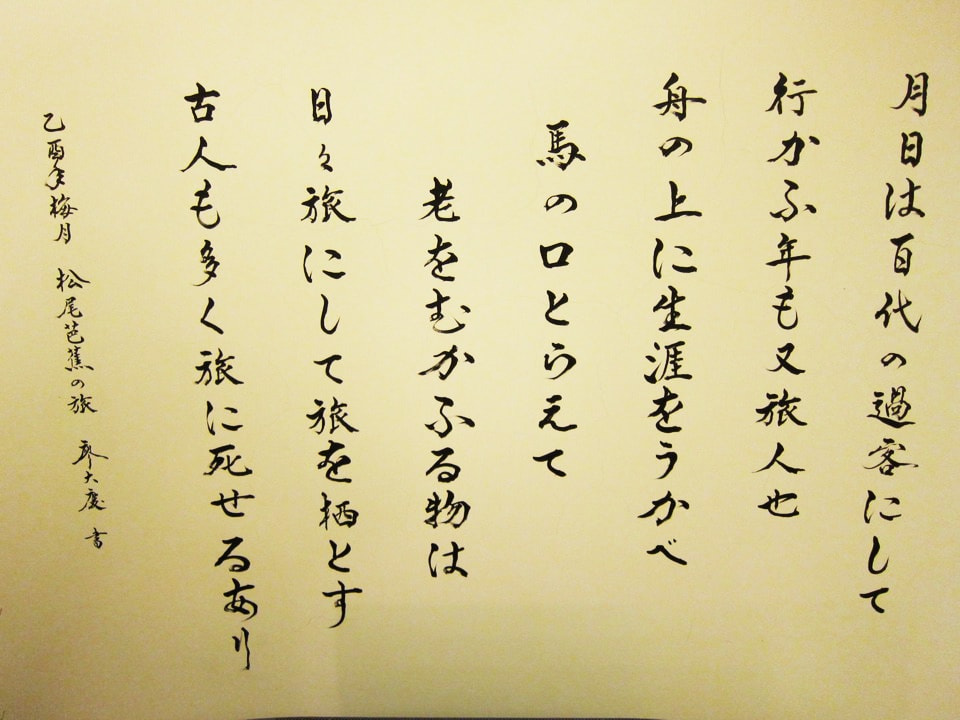 月日は百代の過客にして
行かふ年も又旅人也
舟の上に生涯をうかべ
馬の口とらえて
老をむかふる物は
日々旅にして旅を栖とす
古人も多く旅に死せるあり
乙酉年梅月 松尾芭蕉の旅 廖大慶 書